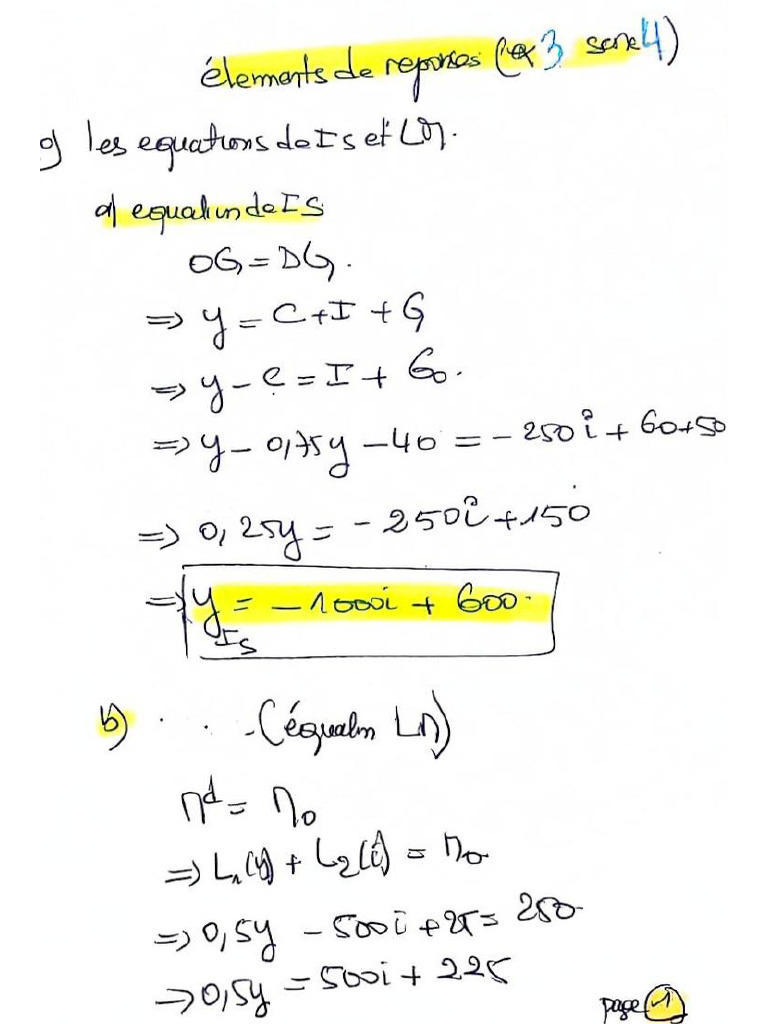 élements de reponses (ex 3 serie 4)
a) les equations de IS et LM.
a) equation de IS
OG = DG.
=> y = C + I + G
=> y - C = I + G0.
=> y - 0,75y - 40 = - 250i + 60+50
=> 0,25y = - 250i + 150
=> y = - 1000i + 600.
IS
b) . . . (équation LM)
M^d = M0
=> L1(y) + L2(i) = M0
=> 0,5y - 500i + 25 = 250
=> 0,5y = 500i + 225
page 1